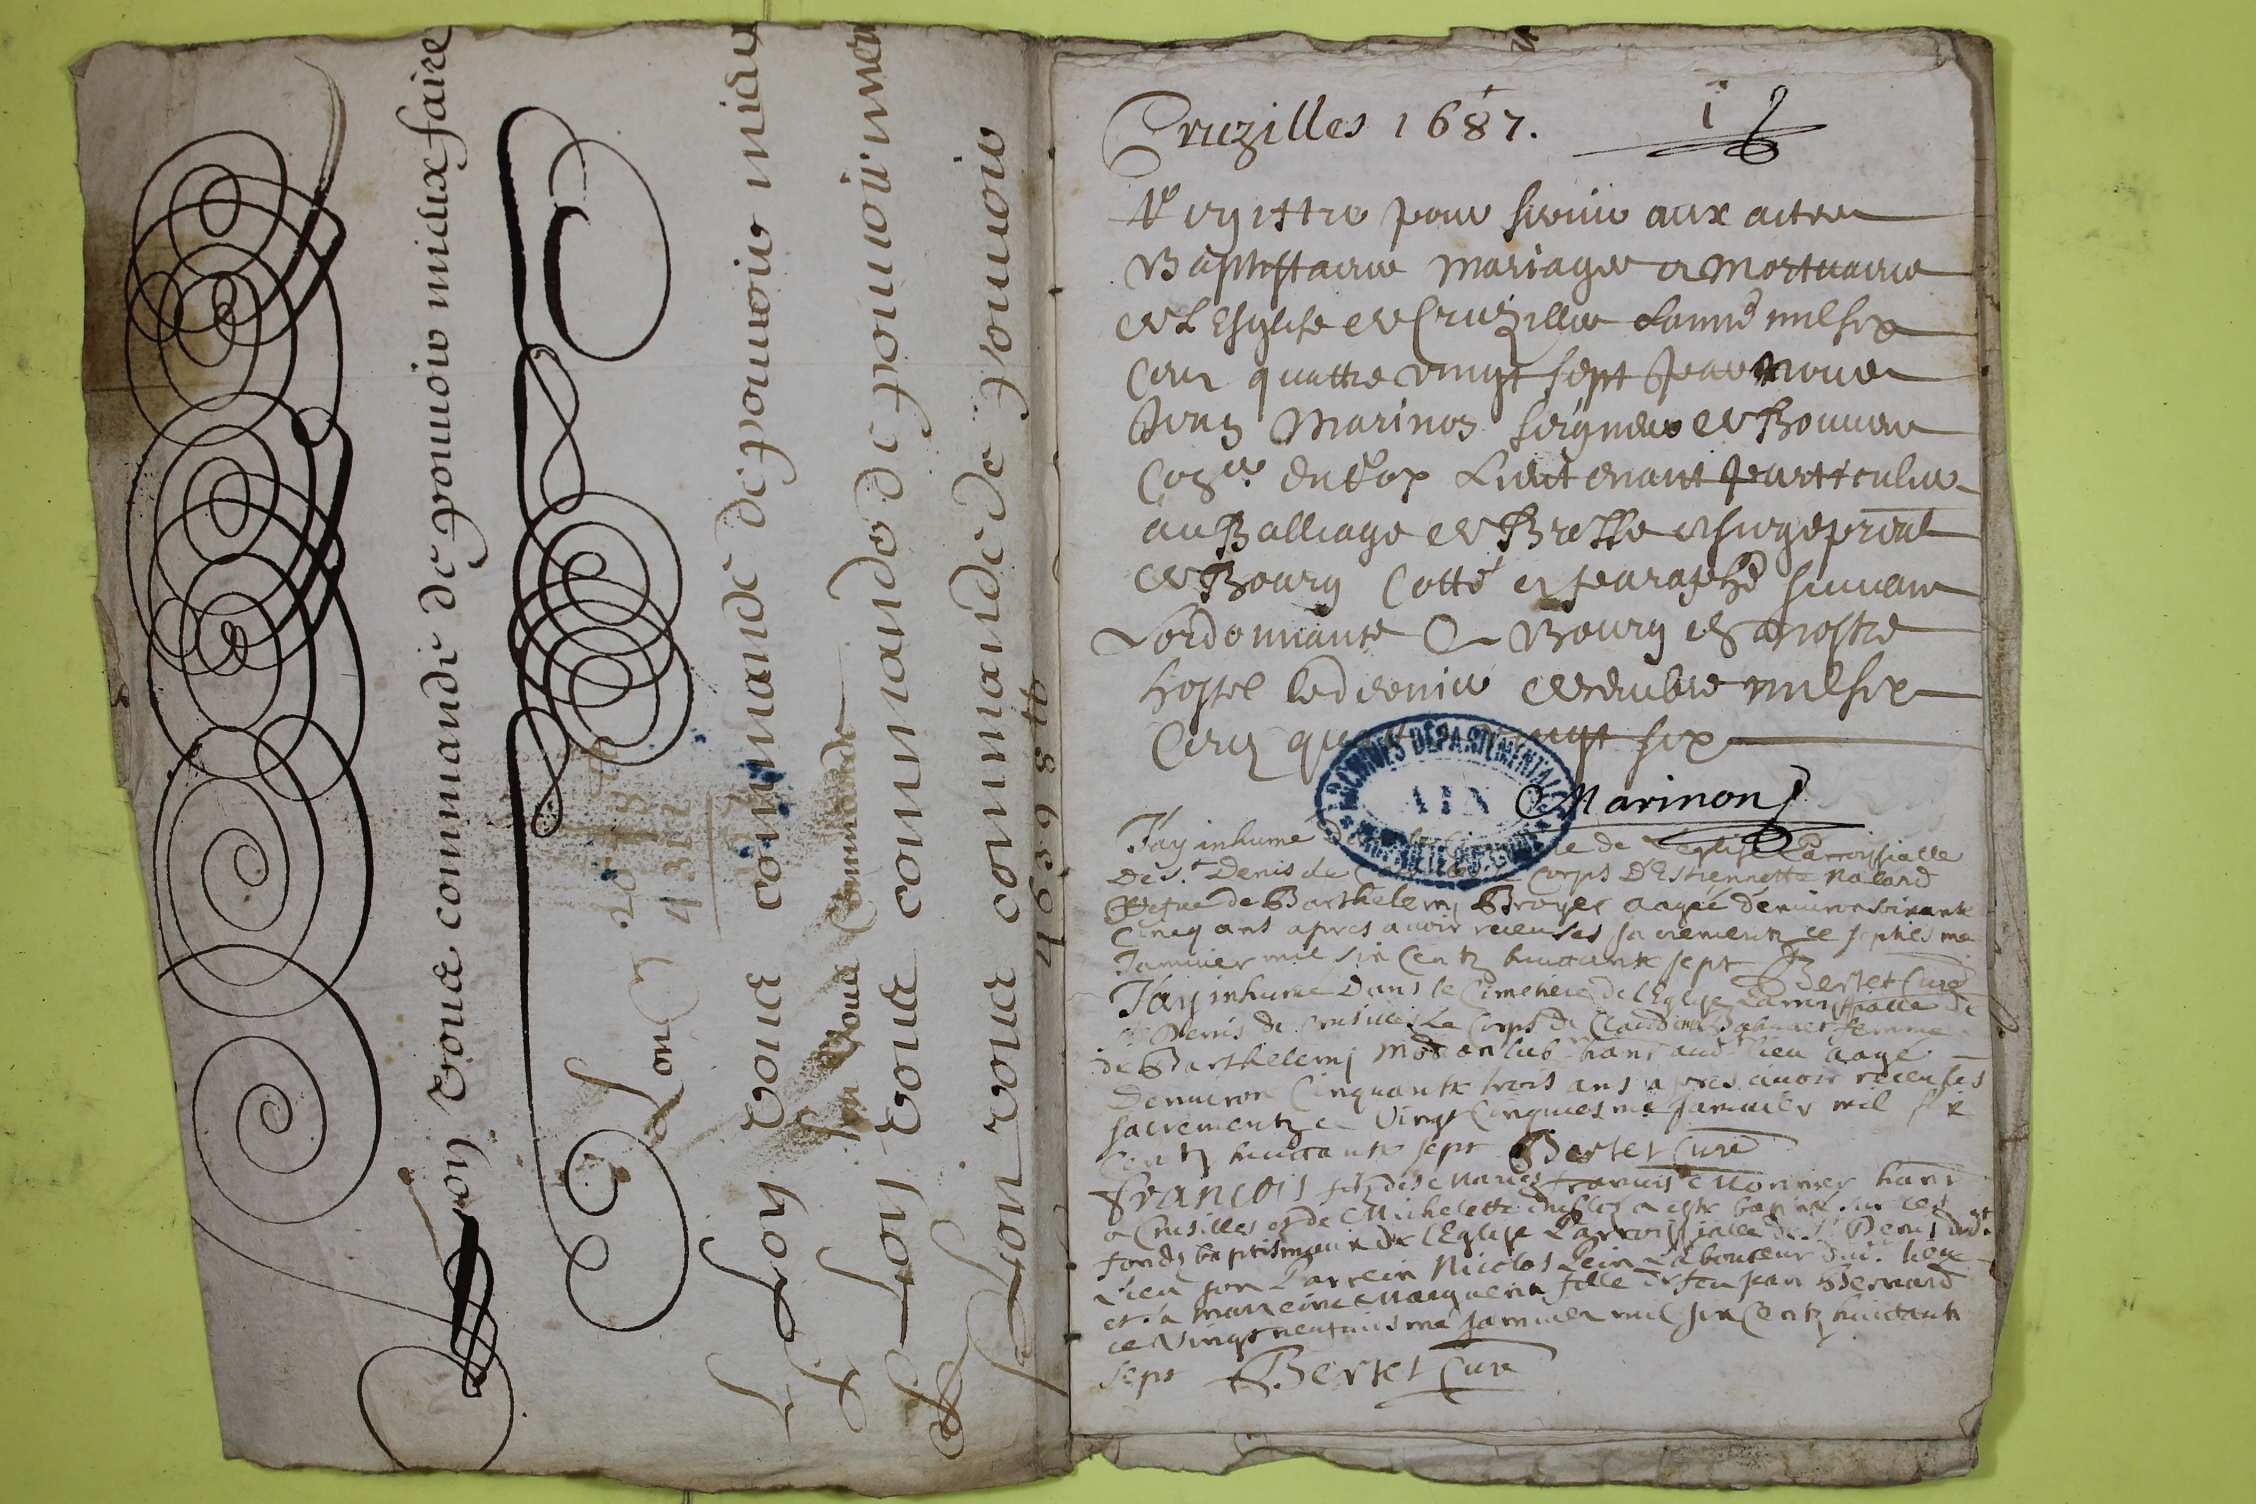 Lon vous commande de pouuoir mieux faire
Lon
20 18 tt
4312
Lon vous commande de pouuoir mieu
Lon vous Commande
Lon vous commande de pouuoir mieu
Lon vous commande de pouuoir
4639 8 tt
Cruzilles 1687.
1
Registre pour seruir aux actes
Baptistaires mariages et mortuaires
de L'Esglise de Cruzilles L'année mil six
Cens quattre vingt sept Par Nous
Jean Marinon seigneur de Bouuens
Con.er du Roy Lieutenant particulier
au Balliage de Bresse et siege pri͞al
de Bourg Cotté et paraphé suiuant
Lordonnance A Bourg en nostre
hostel le dernier decembre mil six
Cens quattre vingt six
Marinon
ARCHIVES DÉPARTEMENTALES
AIN
J'ay inhumé de L'eglise Parroissialle
de S.t Denis de Corps D'Estiennette Naland
Vefue de Barthelemy Broyer aagée d'enuiron soixante
Cincq ans apres auoir receu ses sacrementz ce septiesme
Januier mil six Centz huictante sept Bertet Curé
J'ay inhumé Dans le Cimetiere de l'Eglise Parroissialle de
S.t Denis de Crusilles Le Corps de Claudine femme
de Barthelemj hant aud. lieu aagé
Denuiron Cinquante trois ans apres auoir receu ses
sacrementz ce Vingt Cinquiesme Januier mil six
Centz huictante sept Bertet Curé
François filz des Mariés françois Monnier hant
a Crusilles et de Michelette a esté baptisé sur les
fondz baptismaux de l'Eglise Parroissialle de S.t Denis dud.t
Lieu son Parrein Nicolas Pein Laboureur dud.t lieu
et sa marreine Marguerite fille de feu Jean Bernard
ce Vingt neufuiesme Januier mil six Centz huictante
sept Bertet Curé